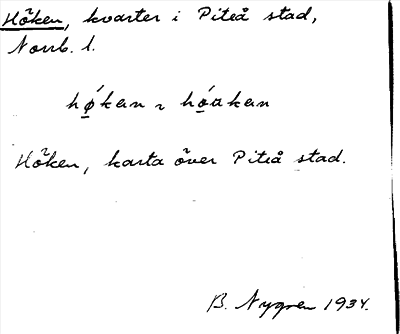 Höken, kvarter i Piteå stad,
Norrb. l.
hǿ̠kan ~ hó̠akan
Höken, karta över Piteå stad.
B. Nygren 1934.